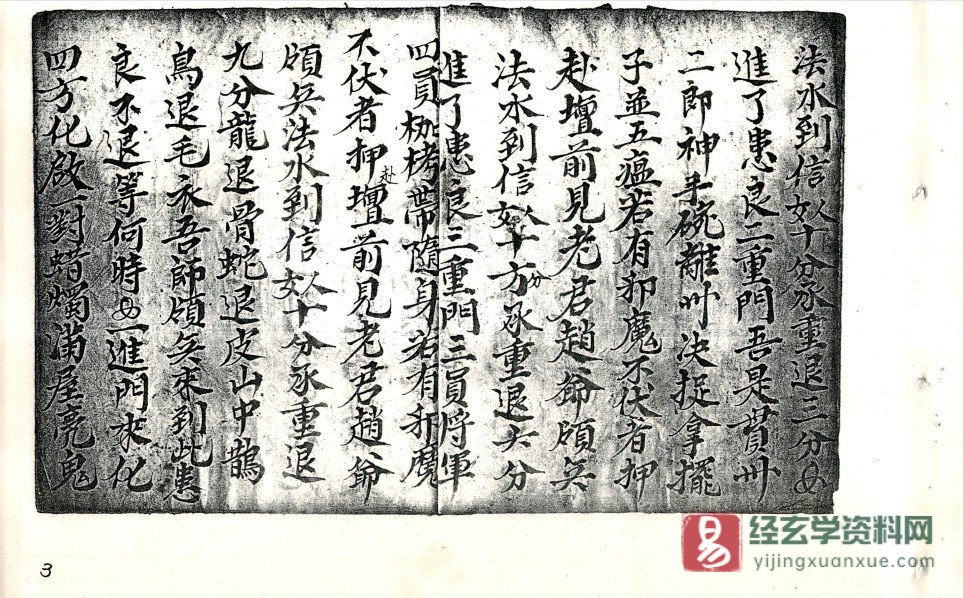 法水到信人女十分承重退三分
進了患良二重門吾是貫州
二郎神手碗離州决捉拿擺
子並五瘟若有邪魔不伏者押
赴壇前見老君趙爺領兵
法水到信人女十分承重退六分
進了患良三重門三員将軍
四員枷栲帶隨身若有邪魔
不伏者押赴壇前見老君趙爺
領兵法水到信人女十分承重退
九分龍退骨蛇退皮山中鵲
鳥退毛衣吾師領兵來到此患
良不退等何時一進門來化
四方化啟一對蜡燭滿屋亮鬼
3
易
经玄学资料网
yijingxuanxue.com